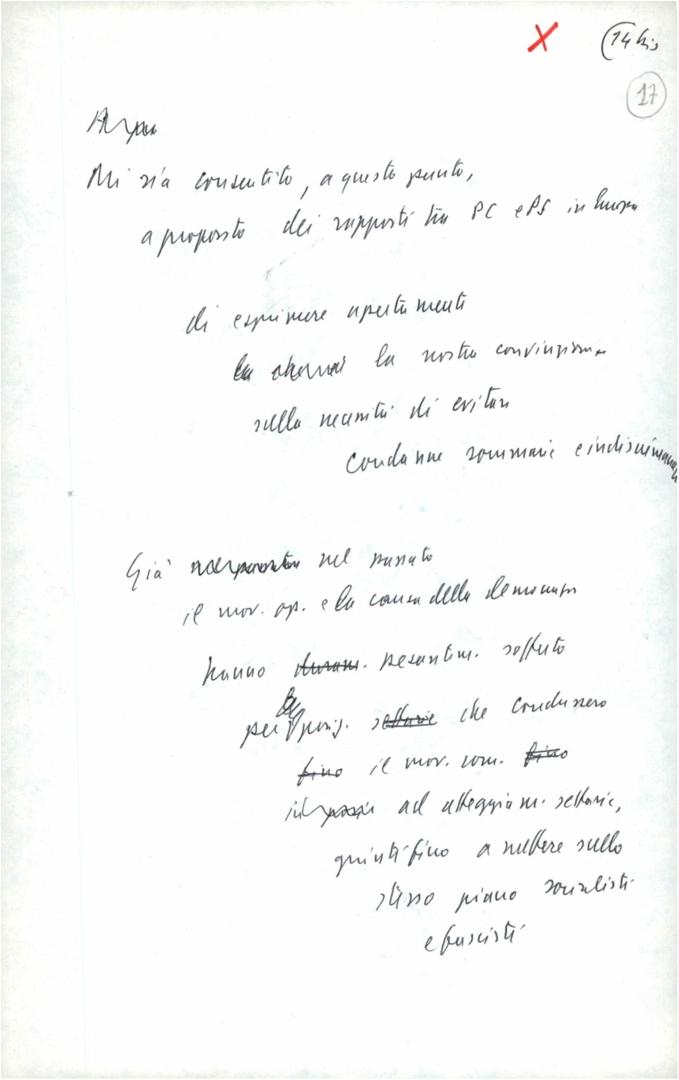 X
14 bis
17
Mi sia consentito, a questo punto,
a proposito dei rapporti tra PC e PS in Europa
di esprimere apertamente
la nostra convinzione
sulla necessità di evitare
condanne sommarie e indiscriminate
Già nel passato
il mov. op. e la causa della democrazia
hanno duram. pesantem. sofferto
per le posiz. settarie che condussero
fino il mov. com. fino
ad atteggiam. settarie,
giunti fino a mettere sullo
stesso piano socialisti
e fascisti